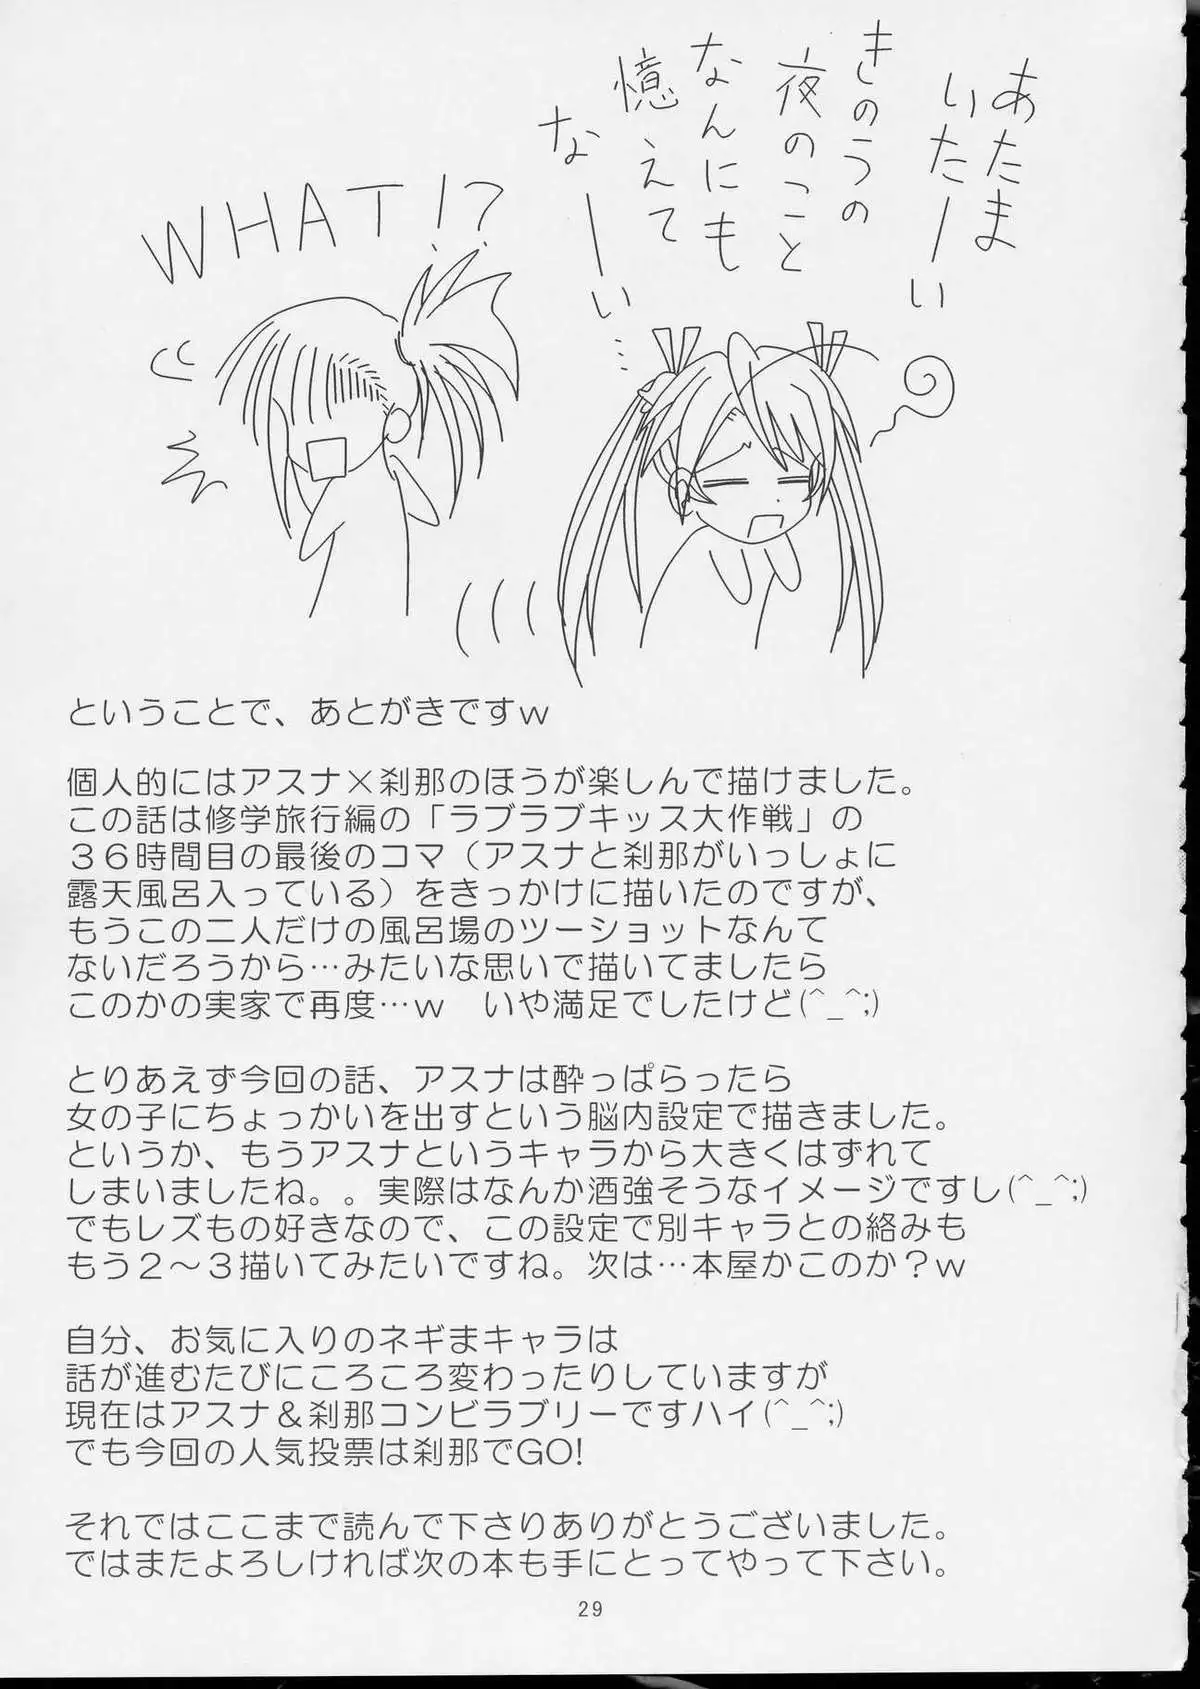 あたま
いたーい
きのうの
夜のこと
なんにも
憶えて
なーい…
WHAT!?
ということで、あとがきですｗ
個人的にはアスナ×刹那のほうが楽しんで描けました。
この話は修学旅行編の「ラブラブキッス大作戦」の
３６時間目の最後のコマ（アスナと刹那がいっしょに
露天風呂入っている）をきっかけに描いたのですが、
もうこの二人だけの風呂場のツーショットなんて
ないだろうから…みたいな思いで描いてましたら
このかの実家で再度…ｗ　いや満足でしたけど(^_^;)
とりあえず今回の話、アスナは酔っぱらったら
女の子にちょっかいを出すという脳内設定で描きました。
というか、もうアスナというキャラから大きくはずれて
しまいましたね。。実際はなんか酒強そうなイメージですし(^_^;)
でもレズもの好きなので、この設定で別キャラとの絡みも
もう２～３描いてみたいですね。次は…本屋かこのか？ｗ
自分、お気に入りのネギまキャラは
話が進むたびにころころ変わったりしていますが
現在はアスナ＆刹那コンビラブリーですハイ(^_^;)
でも今回の人気投票は刹那でGO!
それではここまで読んで下さりありがとうございました。
ではまたよろしければ次の本も手にとってやって下さい。
29